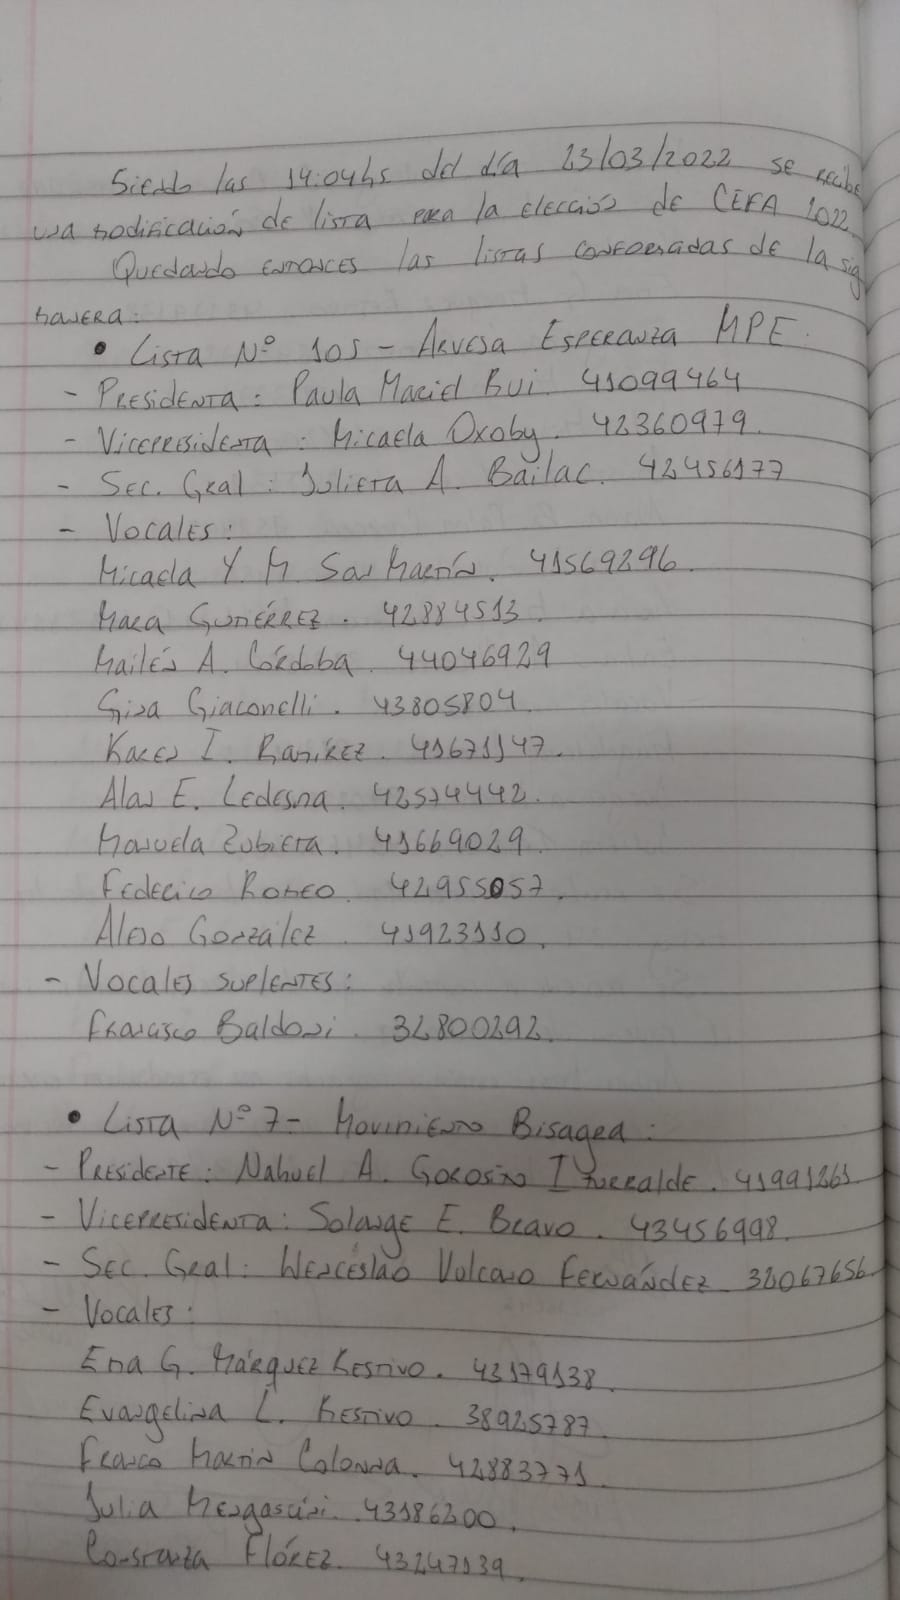 Siendo las 14:04hs del día 23/03/2022 se recibe
una modificación de lista para la elección de CEFA 2022.
Quedando entonces las listas conformadas de la sig
manera:
• Lista Nº 105 - Agrupa Esperanza MPE.
- Presidenta: Paula Maciel Bui. 41099464
- Vicepresidenta: Micaela Oxoby. 42360979.
- Sec. Gral: Julieta A. Bailac. 42456177
- Vocales:
Micaela Y. M. San Martín. 41569296.
Mara Gutiérrez. 42884513.
Mailén A. Córdoba. 44046929
Gina Giaconelli. 43805804.
Karen I. Ramírez. 41671147.
Alan E. Ledesma. 42574442.
Manuela Zubieta. 41669029.
Federico Romeo. 42955057.
González. 41923110.
- Vocales suplentes:
Francisco Baldoni. 32800292.
• Lista Nº 7 - Movimiento Bisagra:
- Presidente: Nahuel A. Gorosito Iturralde. 41991261
- Vicepresidenta: Solange E. Bravo. 43456998.
- Sec. Gral: Wenceslao Volcano Fernández 32067656.
- Vocales:
Ema G. Márquez Restivo. 43179138.
Evangelina L. Restivo. 38925787.
Franco Martín Colonna. 42883771.
Julia 43186200.
Constanza Flórez. 43247139.